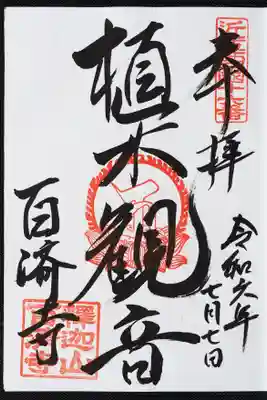 奉拝
令和六年
七月七日
植木観音
百済寺
釋迦山
百済寺